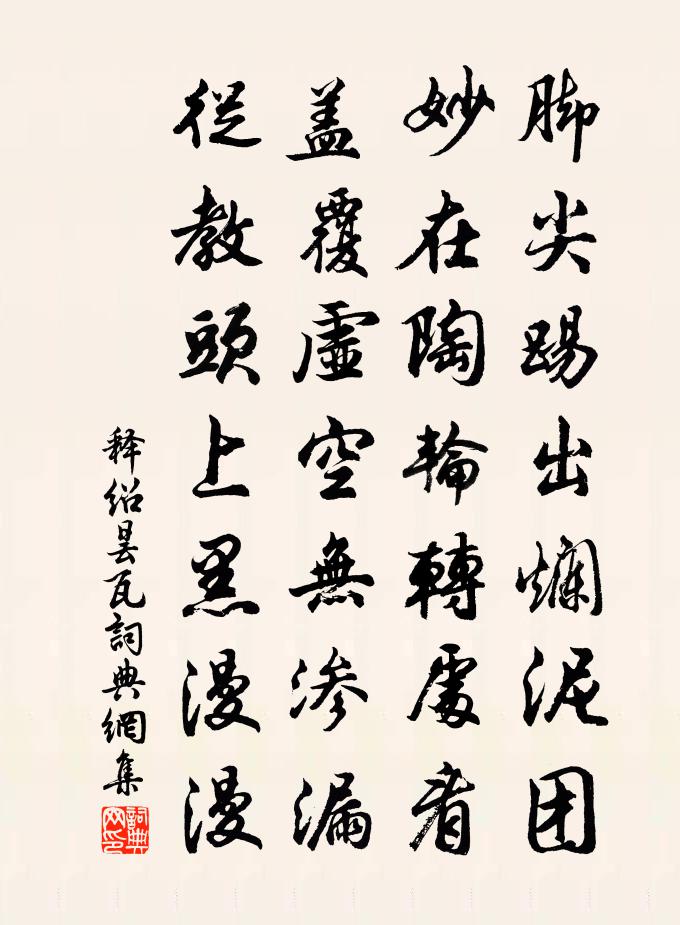 脚尖踢出爛泥团
妙在陶輪轉處看
盖覆虛空無渗漏
從教頭上黑漫漫
释绍昙瓦詞典網集
詞典网印